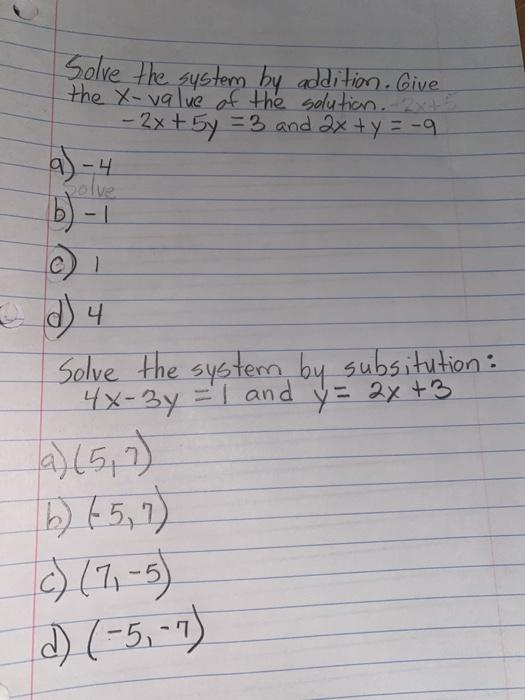 Solve the system by addition. Give
the x-value of the solution. -2x+5
-2x+5y=3 and 2x+y=-9
a) -4
Solve
b) -1
c) 1
d) 4
Solve the system by subsitution:
4x-3y=1 and y=2x+3
a) (5,7)
b) (-5,7)
c) (7,-5)
d) (-5,-7)